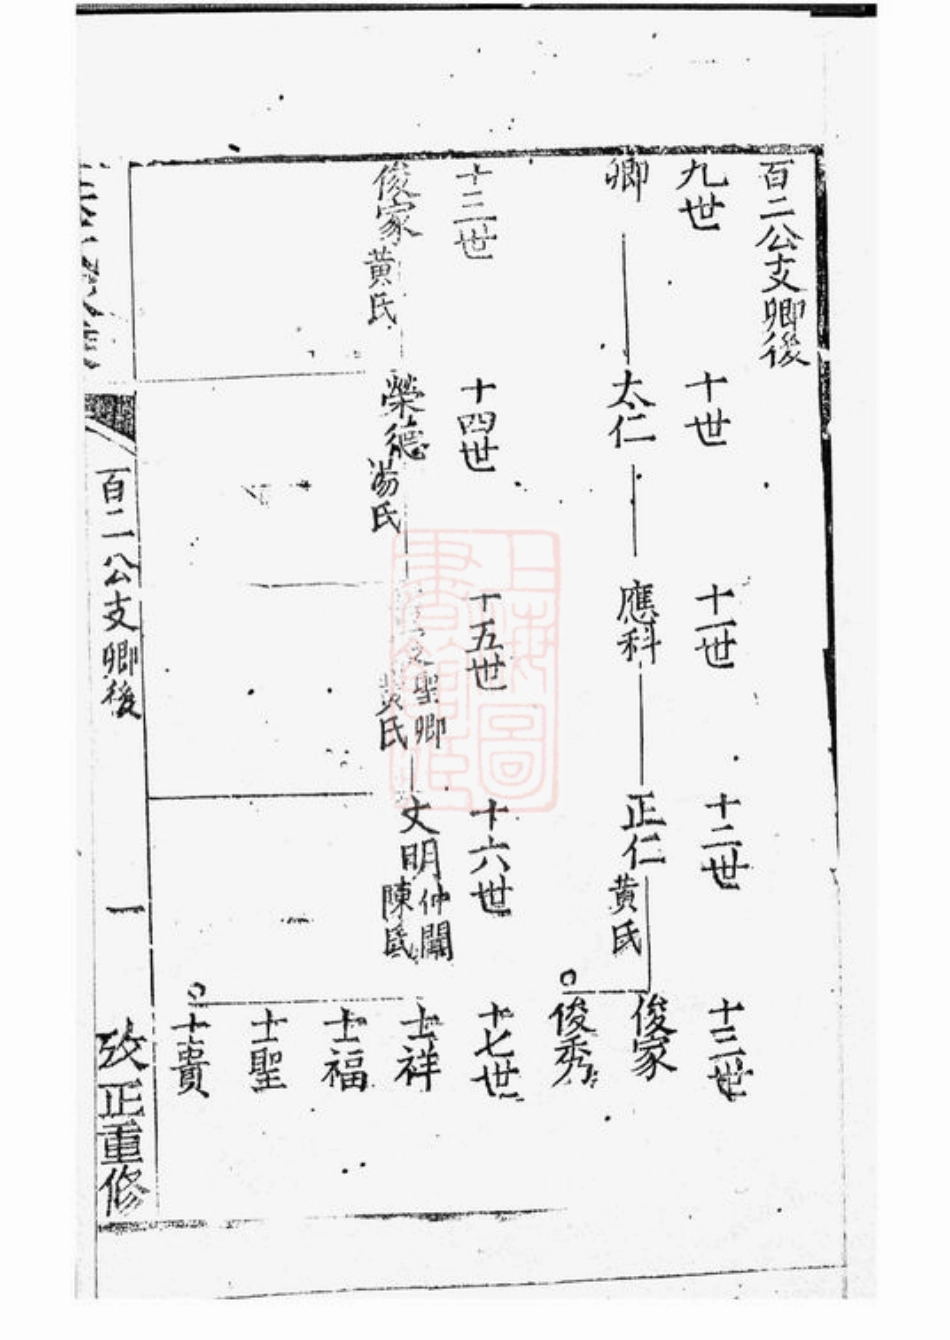 百二公支卿後
九世
十世
十一世
十二世
十三世
卿
太仁
應科
正仁 黃氏
俊家
俊秀
十三世
十四世
十五世
十六世
十七世
俊家 黃氏
榮德 湯氏
聖卿 黃氏
文明 仲開 陳氏
士祥
士福
士聖
士貴
百二公支卿後
一
攷正重修
上海圖書館藏